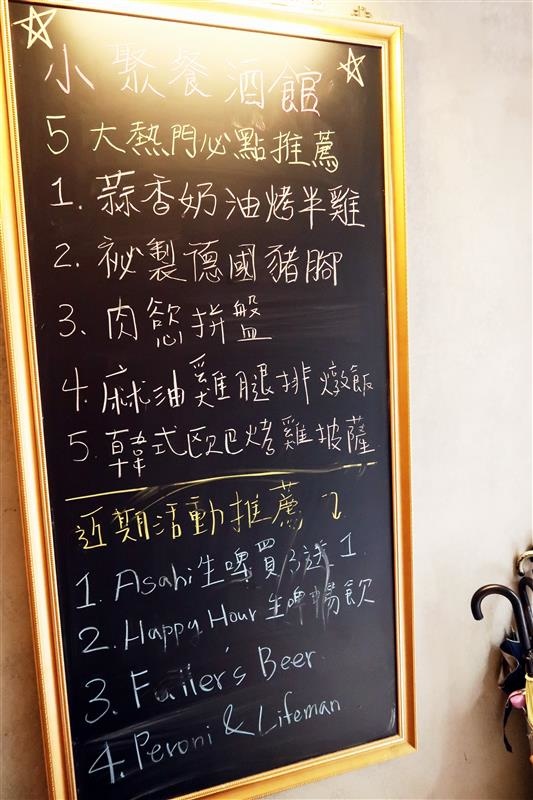 小聚餐酒館
5大熱門必點推薦
1. 蒜香奶油烤半雞
2. 祕製德國豬腳
3. 肉慾拼盤
4. 麻油雞腿排燉飯
5. 韓式歐巴烤雞披薩
近期活動推薦
1. Asahi生啤買3送1.
2. Happy Hour生啤暢飲
3. Failer's Beer.
4. Peroni & Lifeman